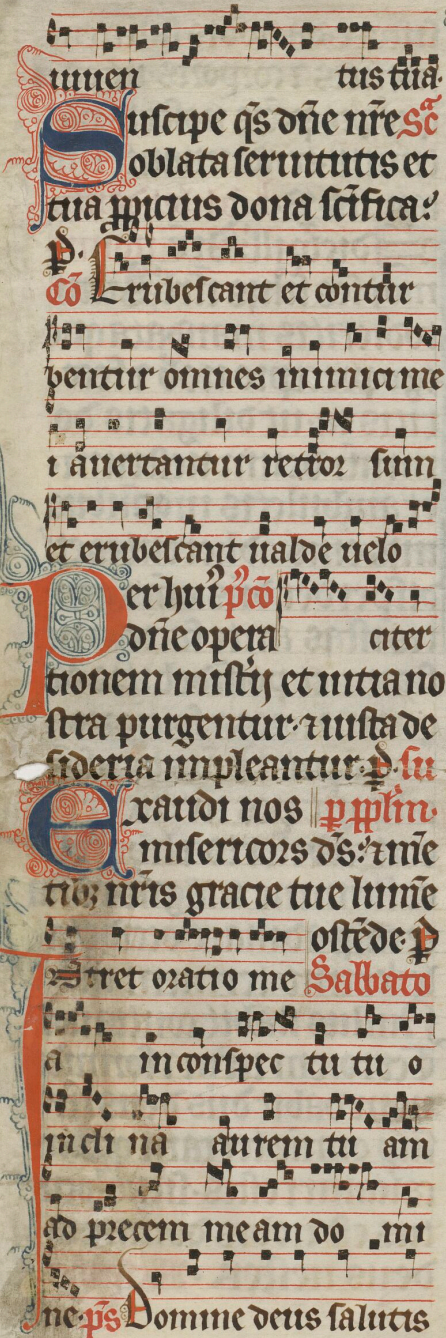 iuuen tus tua.
Suscipe q̄s dn̄e nr̄e Sc̄a
oblata seruitutis et
tua ꝓpicius dona sc̄ifica.
ꝑ.
Cō Erubescant et contur
bentur omnes inimici me
i auertantur retror sum
et erubescant ualde uelo
Per huiꝰ p̄cō
dn̄e opera citer
tionem mist̄ij et uitia no
stra purgentur. ⁊ iusta de
sideria impleantur. ꝑ. su
Exaudi nos p̄ ppl̄m.
misericors d̄s. ⁊ mē
tibꝫ nr̄is gracie tue lumē
ostēde. ꝑ
Intret oratio me Sabbato
a in conspec tu tu o
in cli na aurem tu am
ad precem meam do mi
ne. p̄s Domine deus salutis